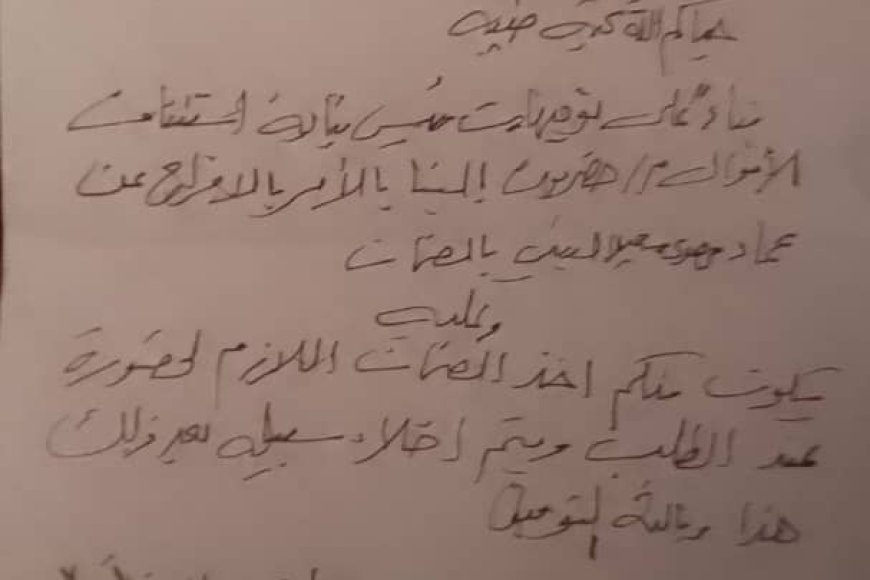 حياكم الله تحية طيبة
بناءً على توجيهات رئيس نيابة استئناف
الأموال م/حضرموت إلينا بالأمر بالافراج عن
عماد مهدي سعيد بالضمان
وعليه
يكون منكم اخذ الضمان اللازم لحضورة
عند الطلب ويتم اخلاء سبيله بعد ذلك
هذا وبالله التوفيق